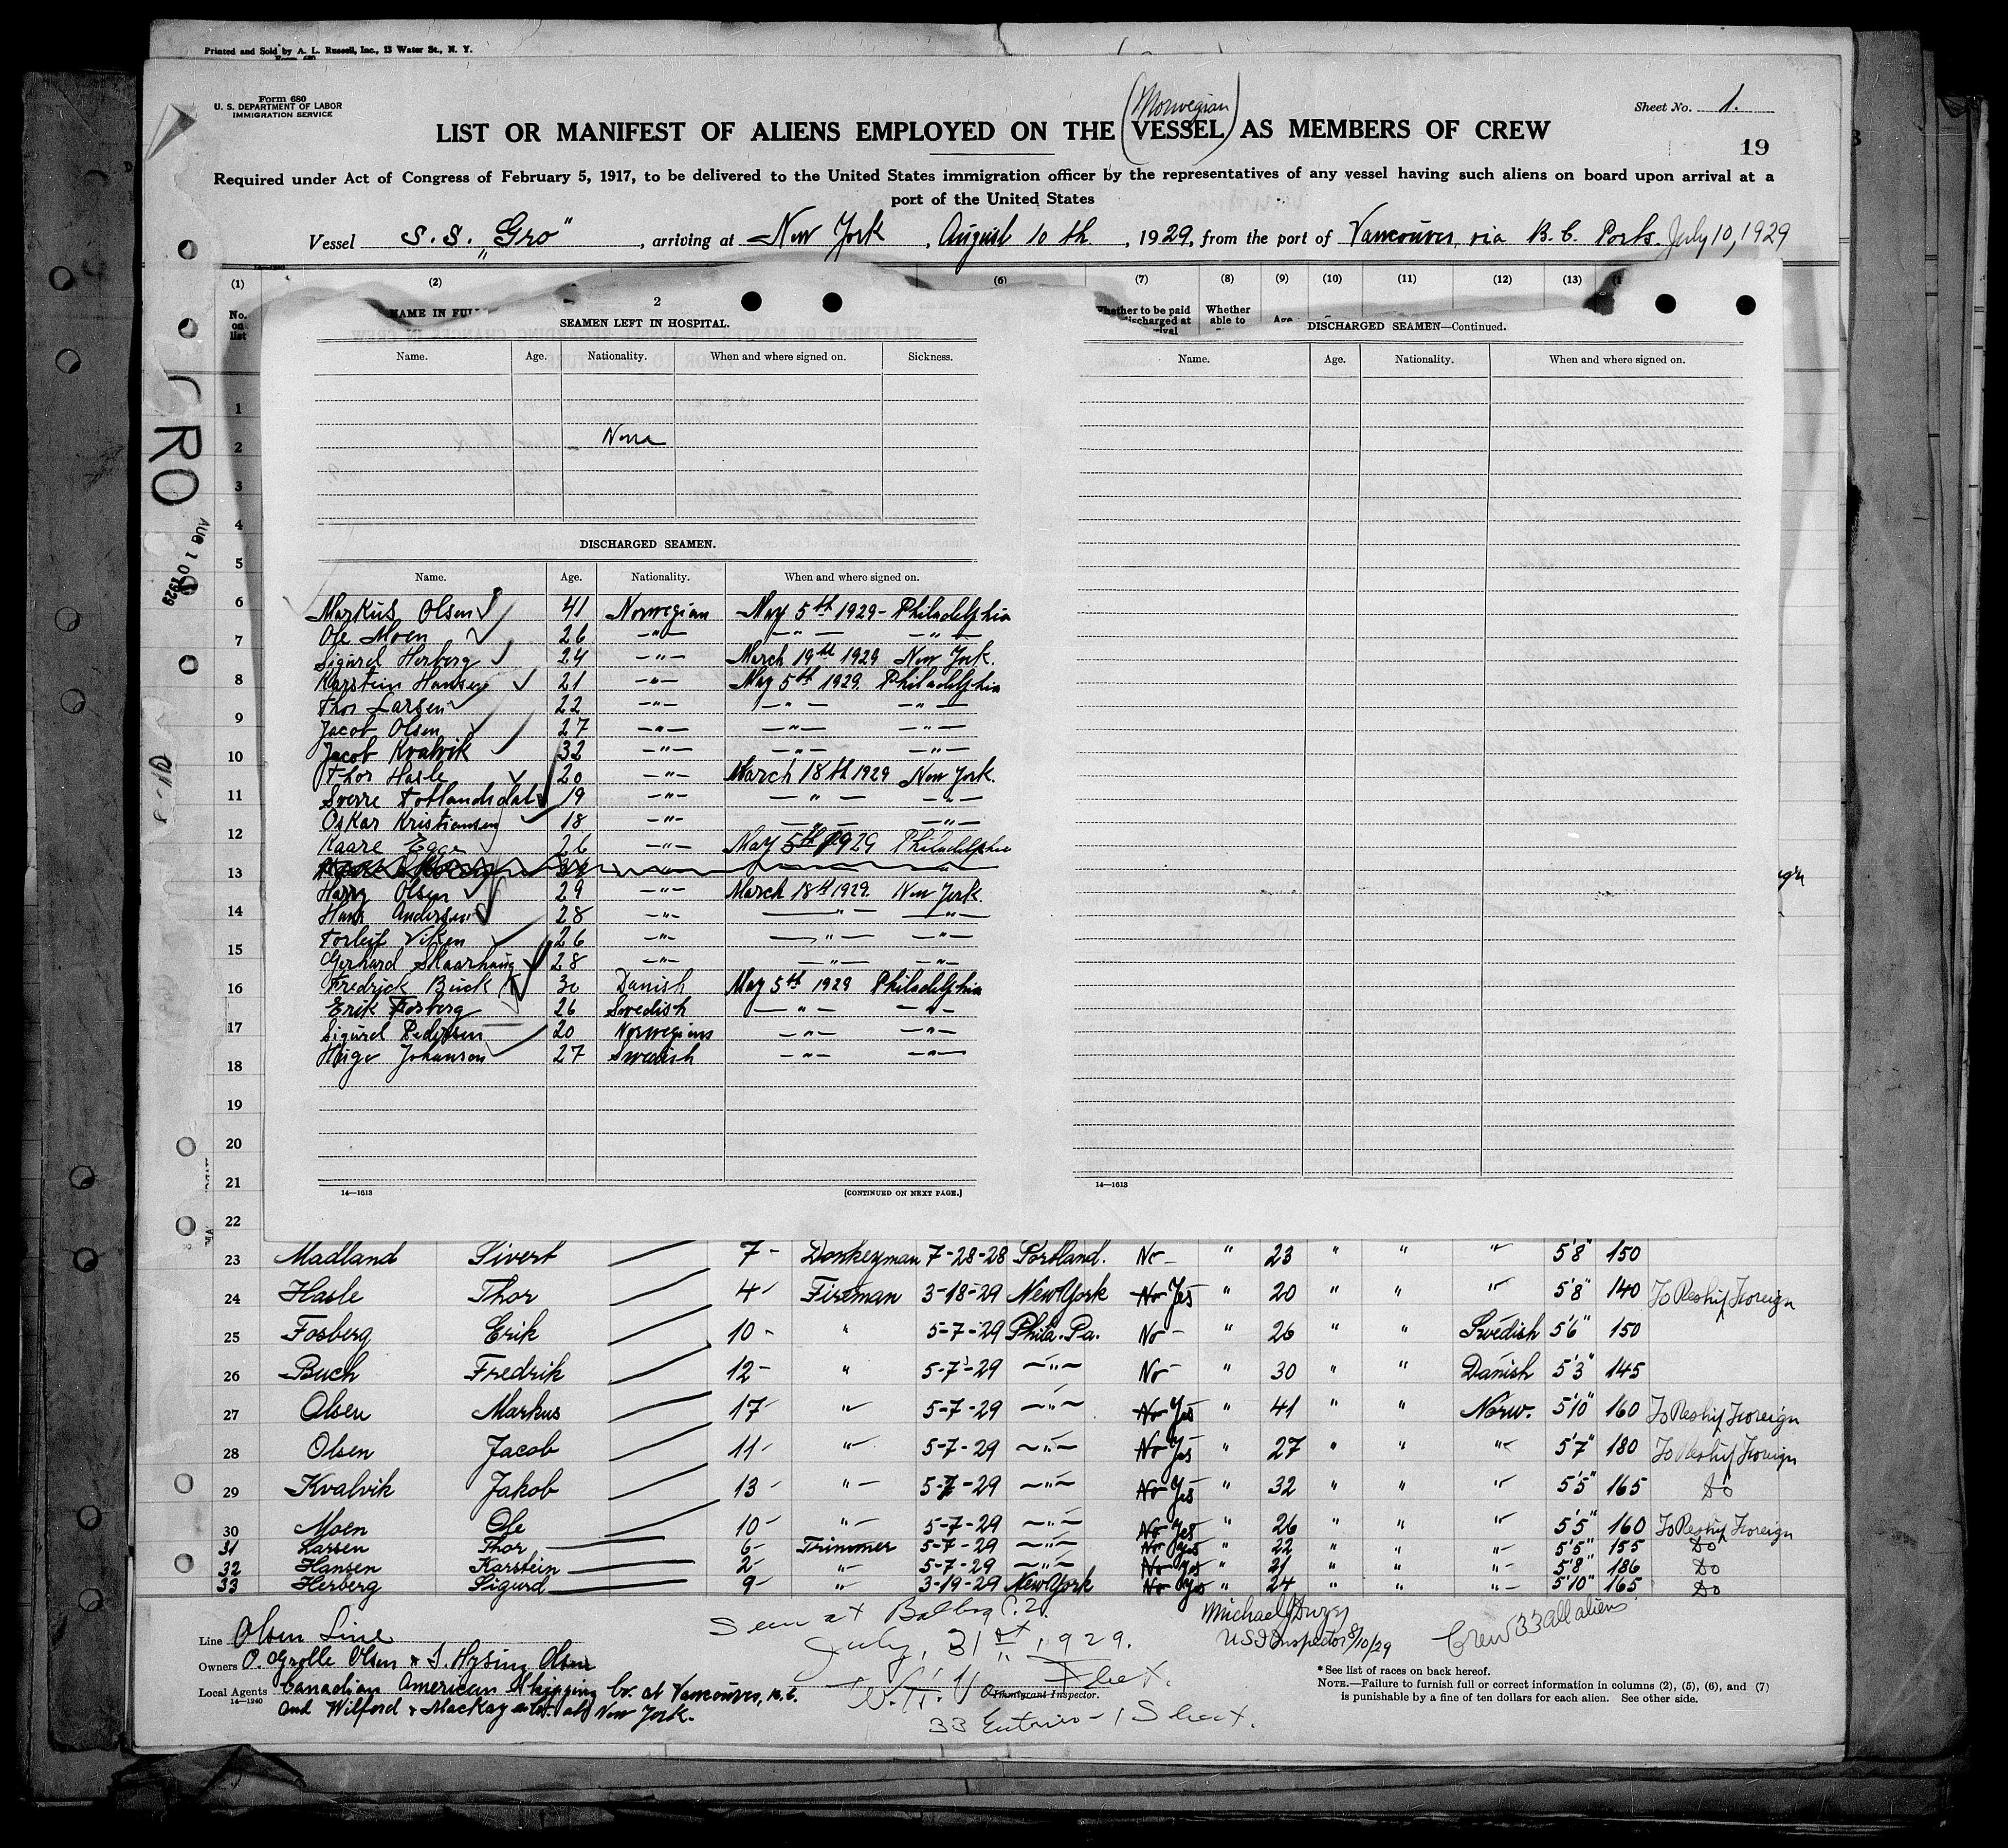 Printed and Sold by A. L. Russell, Inc., 13 Water St., N. Y.
Form 680
U. S. DEPARTMENT OF LABOR
IMMIGRATION SERVICE
Sheet No. 1.
(Norwegian)
LIST OR MANIFEST OF ALIENS EMPLOYED ON THE VESSEL AS MEMBERS OF CREW
19
Required under Act of Congress of February 5, 1917, to be delivered to the United States immigration officer by the representatives of any vessel having such aliens on board upon arrival at a
port of the United States
Vessel S.S. "Gro", arriving at New York, August 10th, 1929, from the port of Vancouver via B.C. Ports. July 10, 1929
(1) (2) (6) (7) (8) (9) (10) (11) (12) (13)
No. on list
NAME IN FULL
Whether to be paid
discharged at
Whether able to
Age
GRO
AUG 10 1929
2
SEAMEN LEFT IN HOSPITAL.
Name. Age. Nationality. When and where signed on. Sickness.
None
DISCHARGED SEAMEN.
Name. Age. Nationality. When and where signed on.
Markus Olsen 41 Norwegian May 5th 1929 - Philadelphia
Ole Moen 26 -"- -"- -"-
Sigurd Herberg 24 -"- March 19th 1929 New York.
Karstein Hansen 21 -"- May 5th 1929. Philadelphia
Thor Larsen 22 -"- -"- -"-
Jacob Olsen 27 -"- -"- -"-
Jacob Kvalvik 32 -"- -"- -"-
Thor Hasle 20 -"- March 18th 1929 New York.
Sverre Totlandsdal 19 -"- -"- -"-
Oskar Kristiansen 18 -"- -"- -"-
Kaare Egge 26 -"- May 5th 1929 Philadelphia
Harry Olsen 29 -"- March 18th 1929. New York.
Hans Andersen 28 -"- -"- -"-
Torleif Viken 26 -"- -"- -"-
Gerhard Skaarhaug 28 -"- -"- -"-
Fredrick Buck 30 Danish May 5th 1929 Philadelphia
Erik Fosberg 26 Swedish -"- -"-
Sigurd Pedersen 20 Norwegians -"- -"-
Helge Johanson 27 Swedish -"- -"-
14—1613
[CONTINUED ON NEXT PAGE.]
DISCHARGED SEAMEN—Continued.
Name. Age. Nationality. When and where signed on.
14—1613
1
2
3
4
5
6
7
8
9
10
11
12
13
14
15
16
17
18
19
20
21
22
23 Madland Sivert 7- Donkeyman 7-28-28 Portland. No- " 23 " " " 5'8" 150
24 Hasle Thor 4- Fireman 3-18-29 New York No Yes " 20 " " " 5'8" 140 To Reship Foreign
25 Fosberg Erik 10- " 5-7-29 Phila. Pa. No- " 26 " " Swedish 5'6" 150
26 Buch Fredrik 12- " 5-7-29 -"- No- " 30 " " Danish 5'3" 145
27 Olsen Markus 17 " 5-7-29 -"- No Yes " 41 " " Norw. 5'10" 160 To Reship Foreign
28 Olsen Jacob 11- " 5-7-29 -"- No Yes " 27 " " " 5'7" 180 To Reship Foreign
29 Kvalvik Jakob 13- " 5-7-29 -"- No Yes " 32 " " " 5'5" 165 Do
30 Moen Ole 10- " 5-7-29 -"- No Yes " 26 " " " 5'5" 160 To Reship Foreign
31 Larsen Thor 6- Trimmer 5-7-29 -"- No Yes " 22 " " " 5'5" 155 Do
32 Hansen Karstein 2- " 5-7-29 -"- No Yes " 21 " " " 5'8" 186 Do
33 Herberg Sigurd 9- " 3-19-29 New York No Yes " 24 " " " 5'10" 165 Do
Line Olsen Line
Owners O. Grolle Olsen & I. Hysing Olsen
Local Agents Canadian American Shipping Co. at Vancouver, B.C.
14—1240
and Wilford & MacKay at New York.
Seen at Balboa C.Z.
July, 31st, 1929.
Immigrant Inspector.
33 Entries - 1 Sheet.
Michael
USI Inspector 8/10/29
Crew 33 all aliens
* See list of races on back hereof.
NOTE.—Failure to furnish full or correct information in columns (2), (5), (6), and (7)
is punishable by a fine of ten dollars for each alien. See other side.